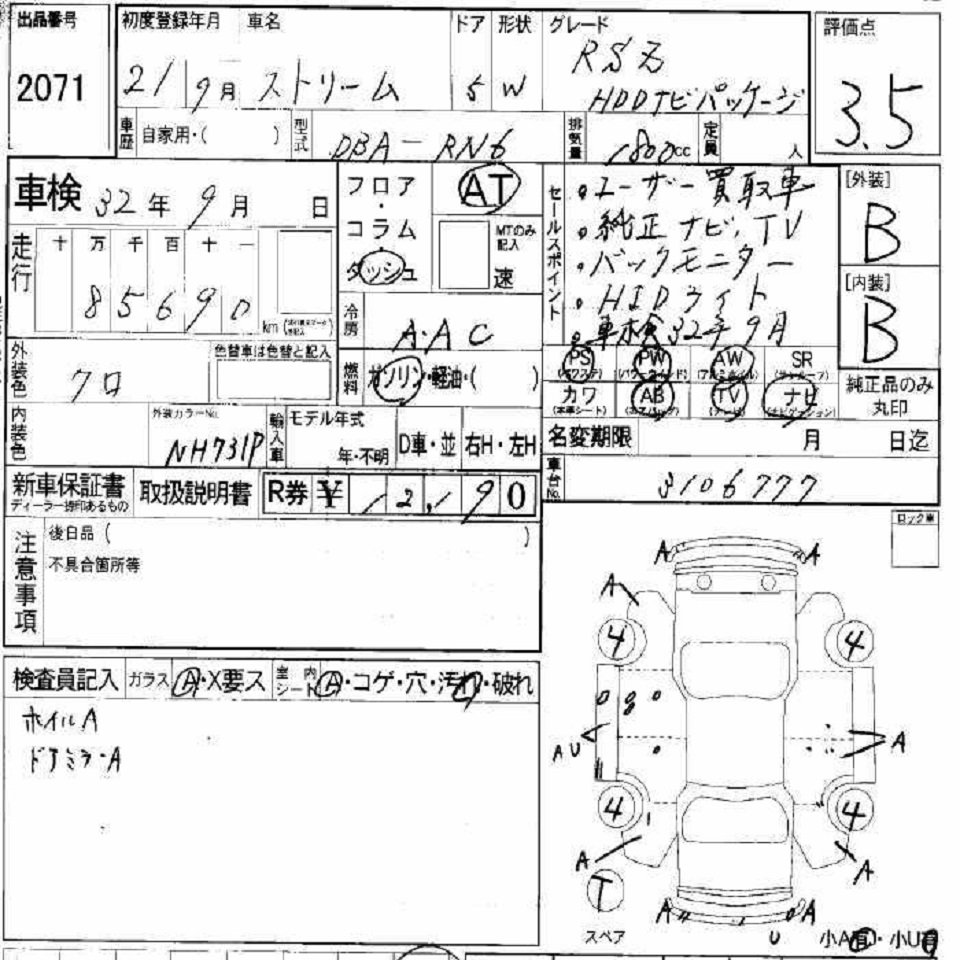 出品番号 初度登録年月 車名 ドア 形状 グレード 評価点
2071 21 9月 ストリーム 5 W RSZ
HDDナビパッケージ 3.5
車歴 自家用・( ) 型式 DBA-RN6 排気量 1800cc 定員 人
車検 32年 9月 日 フロア・コラム・ダッシュ AT MTのみ記入 速
走行 十 万 千 百 十 一
85690 km
セールスポイント
・ユーザー買取車
・純正ナビ、TV
・バックモニター
・HIDライト
・車検32年9月
[外装] B
[内装] B
冷房 AAC
燃料 ガソリン・軽油・( )
外装色 クロ 色替車は色替と記入
内装色 外装カラーNo. NH731P 輸入車 モデル年式 年・不明 D車・並 右H・左H
PS PW AW SR
(パワステ) (パワーウインド) (アルミホイル) (サンルーフ)
カワ AB TV ナビ
(本革シート) (エアバッグ) (テレビ) (ナビゲーション)
純正品のみ丸印
名変期限 月 日迄
車台No. 3106777
新車保証書 ディーラー捺印あるもの 取扱説明書 R券 ¥ 12,190
注意事項 後日品 ( )
不具合箇所等
ロック車
検査員記入 ガラス A・X要ス 室内シート A・コゲ・穴・汚れ・破れ
ホイルA
ドアミラーA
A A
A
4 4
A U A
4 4
A A
T
A A
スペア U 小A有・小U有